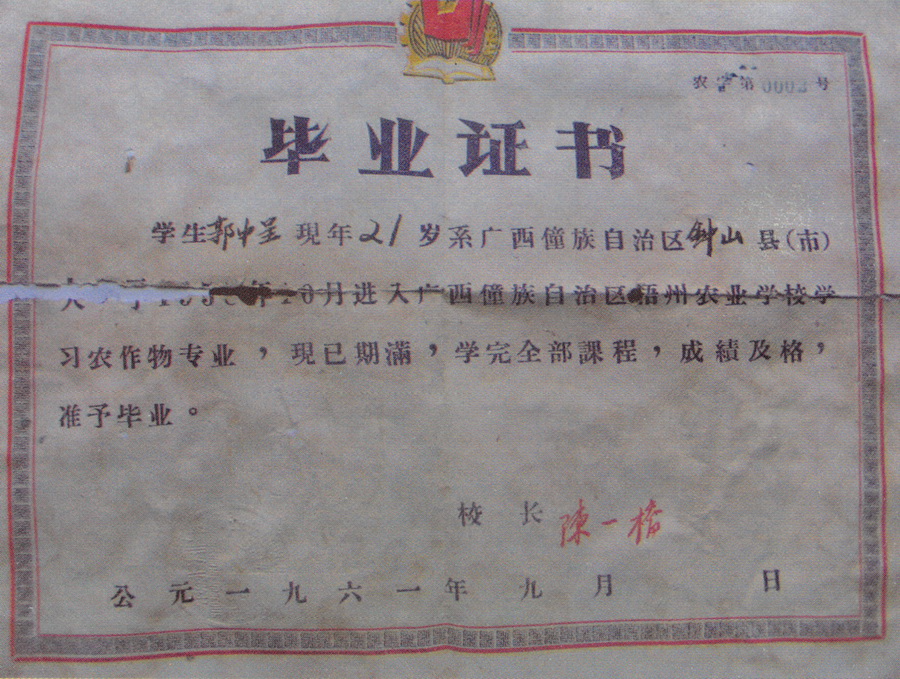 农 第 0002 号
毕业证书
学生郭中呈現年21岁系广西僮族自治区钟山县(市)
人 于195 年10月进入广西僮族自治区梧州农业学校学
习农作物专业，現已期滿，学完全部課程，成績及格，
准予毕业。
校 长 陳一橋
公元一九六一年 九 月 日